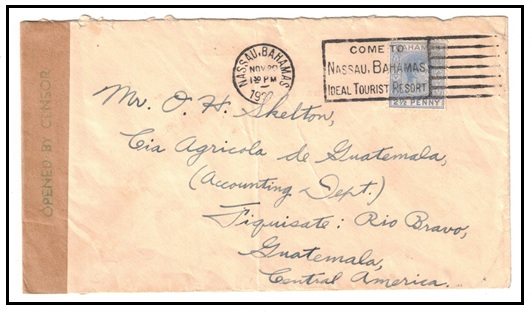 OPENED BY CENSOR
NASSAU. BAHAMAS
NOV
PM
BAHAM
2½ PENNY
COME TO
NASSAU, BAHAMAS
IDEAL TOURIST RESORT
Mr. O. H. Skelton,
Cia Agricola de Guatemala,
(Accounting Dept.)
Tiquisate: Rio Bravo,
Guatemala,
Central America.